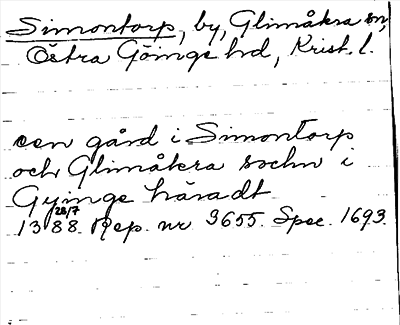 Simontorp, by, Glimåkra sn,
Östra Göinge hd, Krist. l.
een gård i Simontorp
och Glimåkra sochn i
Gyinge häradt
1388 28/7. Rep. nr 3655. Spec. 1693.